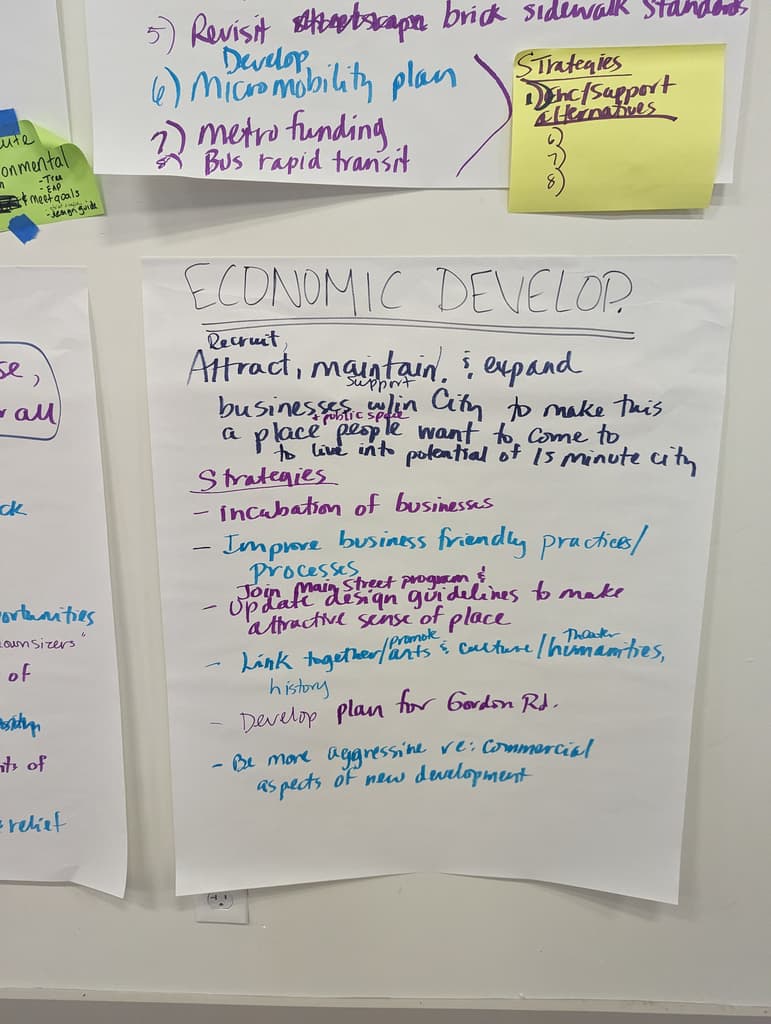 5) Revisit brick sidewalk standards
Develop
6) Micromobility plan
7) metro funding
8) Bus rapid transit
Strategies
1) Enc/Support
alternatives
6)
7)
8)
onmental
- Tree
- EAP
& meet goals
- design guide
se,
r all
ck
ortunities
ownsizers"
of
nts of
relief
ECONOMIC DEVELOP.
Recruit,
Attract, maintain, & expand
support
businesses w/in City to make this
+ public space
a place people want to come to
to live into potential of 15 minute city
Strategies
- incubation of businesses
- Improve business friendly practices/
processes
Join Main Street program &
- Update design guidelines to make
attractive sense of place
promote
Theater
- Link together/arts & culture/humanities,
history
- Develop plan for Gordon Rd.
- Be more aggressive re: commercial
aspects of new development